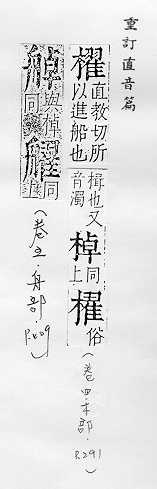 重訂直音篇
櫂 直教切所
以進船也
楫也又
音濁
棹 同
上
櫂 俗
（卷四·木部·P.291）
與棹
同
同
（卷五·舟部·P.409）